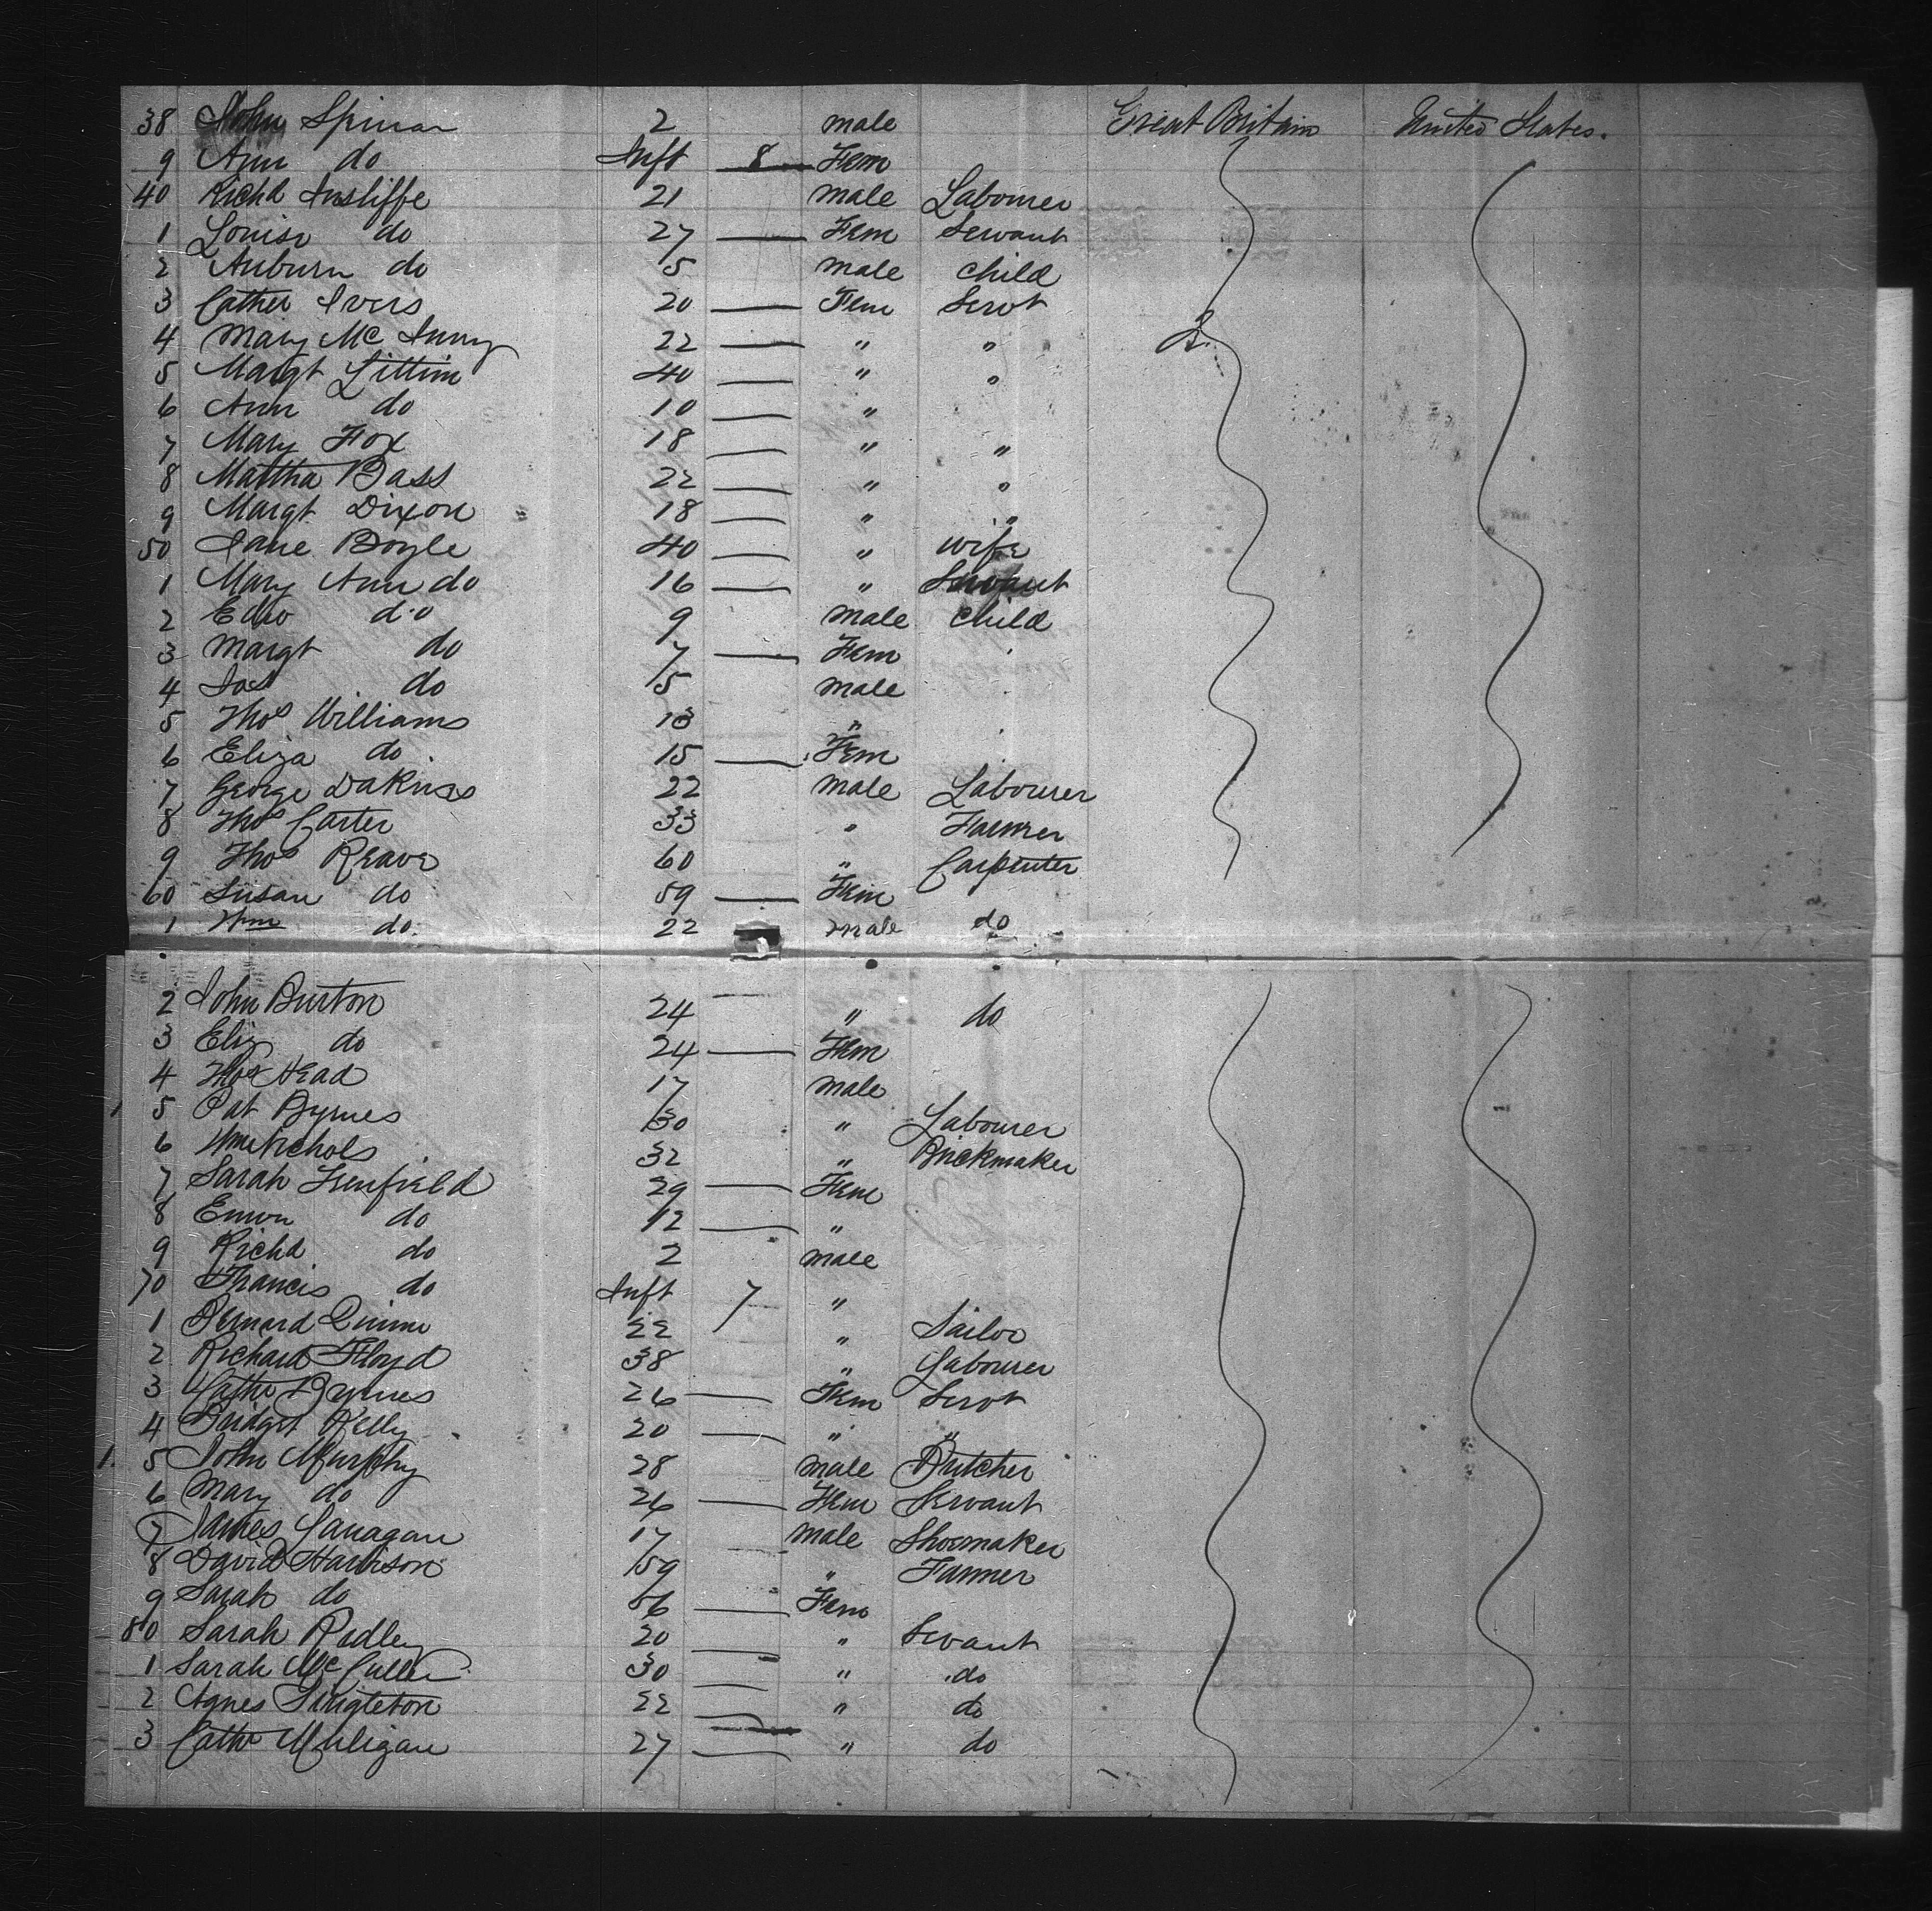 38 John Spinar 2 male Great Britain United States.
9 Ann do Inft 8 Fem
40 Richd Insliffe 21 male Labourer
1 Louisa do 27 — Fem Servant
2 Auburn do 5 male child
3 Cather Ivers 20 — Fem Servt
4 Mary Mc 22 — " "
5 Margt Littim 40 — " "
6 Ann do 10 — "
7 Mary Fox 18 — " "
8 Martha Bass 22 — " "
9 Margt Dixon 18 — " "
50 Jane Boyle 40 — " wife
1 Mary Ann do 16 — " Servant
2 Edwd do 9 male child
3 Margt do 7 — Fem
4 Jas do 5 male
5 Thos Williams 13 "
6 Eliza do 15 — Fem
7 George Dakins 22 male Labourer
8 Thos Carter 33 " Farmer
9 Thos Reave 60 " Carpenter
60 Susan do 59 — Fem
1 Wm do. 22 male do
2 John Burton 24 " do
3 Eliz do 24 — Fem
4 Thos Head 17 male
5 Pat Byrnes 30 " Labourer
6 Wm Nichols 32 " Brickmaker
7 Sarah Fenfield 29 — Fem
8 do 12 — "
9 Richd do 2 male
70 Francis do Inft 7 "
1 Bernard Quinn 22 " Sailor
2 Richard Floyd 38 " Labourer
3 Cathe Byrnes 26 — Fem Servt
4 Bridget Kelly 20 — " "
5 John Murphy 28 male Butcher
6 Mary do 26 — Fem Servant
7 James Lanagan 17 male Shoemaker
8 David Harrison 59 " Farmer
9 Sarah do 56 — Fem
80 Sarah Ridley 20 — " Servant
1 Sarah McCullen 30 — " do
2 Agnes Singleton 22 — " do
3 Cathe Muligan 27 — " do